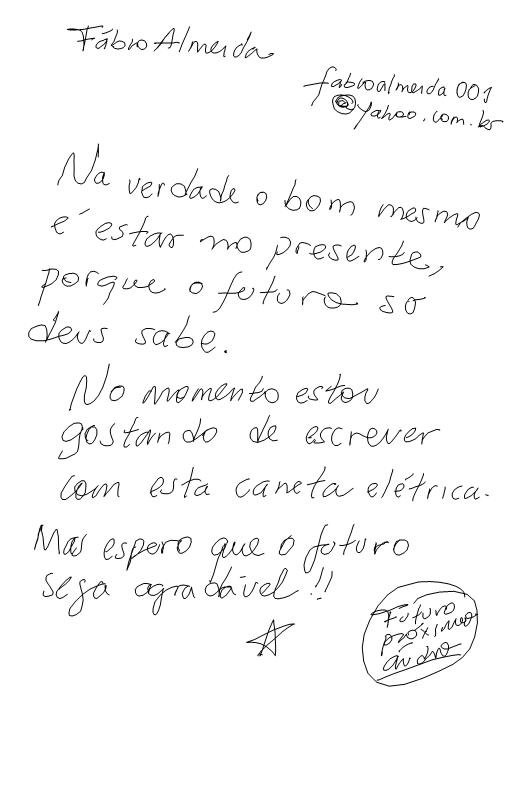 Fábio Almeida
fabioalmeida001
@yahoo.com.br
Na verdade o bom mesmo
é estar no presente,
porque o futuro so
deus sabe.
No momento estou
gostando de escrever
com esta caneta elétrica.
Mas espero que o futuro
seja agradável!!
Futuro
próximo
árduo